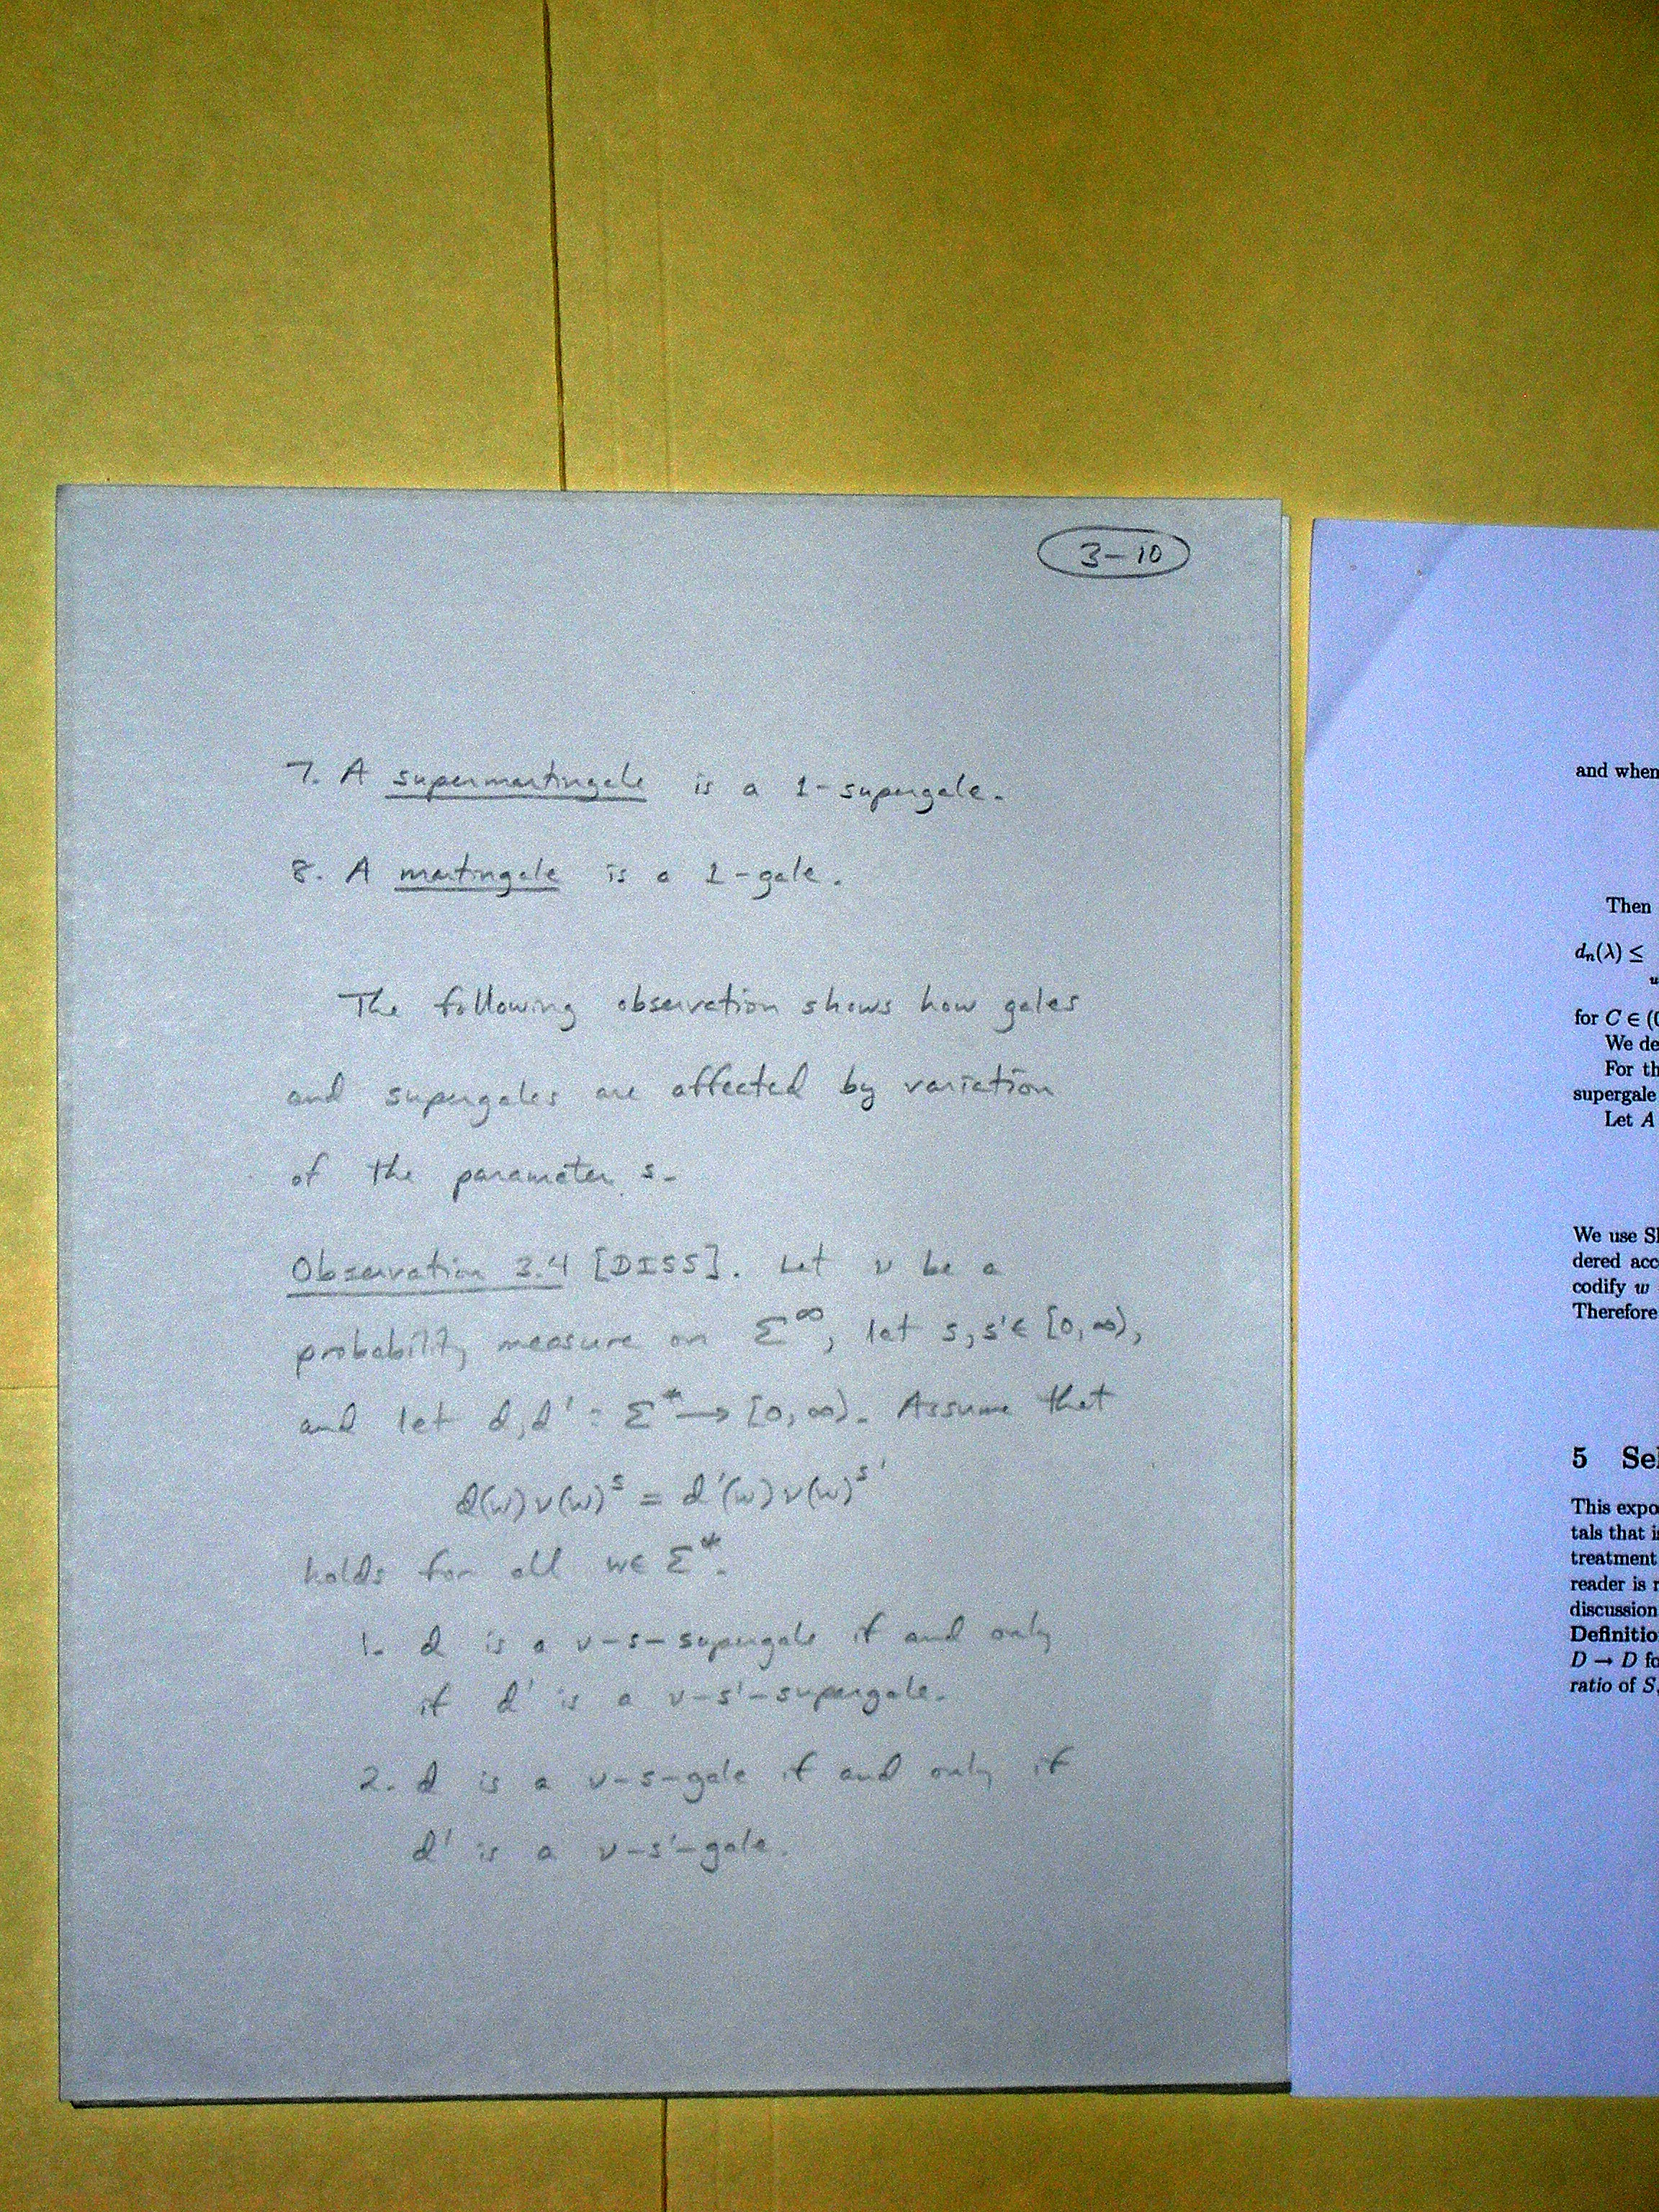 3-10
7. A supermartingale is a 1-supergale.
8. A martingale is a 1-gale.
The following observation shows how gales
and supergales are affected by variation
of the parameter s.
Observation 3.4 [DISS]. Let ν be a
probability measure on Σ^∞, let s,s'∈ [0,∞),
and let d,d' : Σ^* → [0,∞). Assume that
d(w)ν(w)^s = d'(w)ν(w)^s'
holds for all w∈ Σ^*.
1. d is a ν-s-supergale if and only
if d' is a ν-s'-supergale.
2. d is a ν-s-gale if and only if
d' is a ν-s'-gale.
and when
Then
d_n(λ) ≤
for C ∈ (0
We de
For th
supergale
Let A
We use Sh
dered acc
codify w
Therefore
5 Sel
This expo
tals that i
treatment
reader is r
discussion
Definitio
D → D fo
ratio of S,